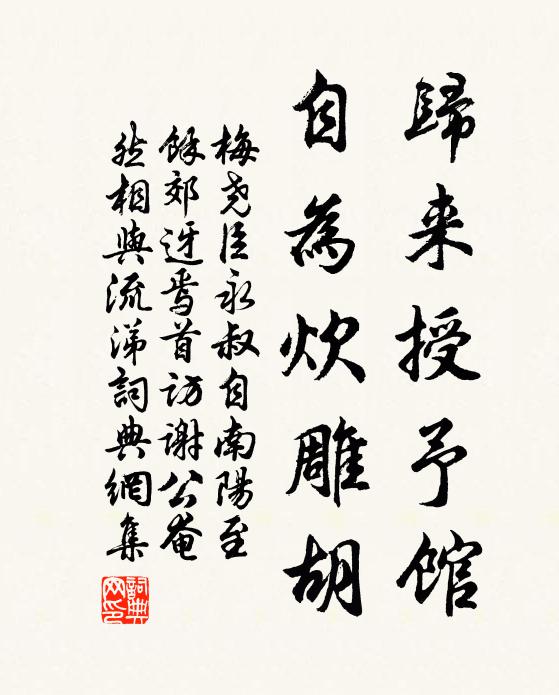 歸来授予館
自為炊雕胡
梅堯臣永叔自南陽至
餘郊迓焉首訪謝公奄
然相與流涕詞典網集
詞典網印